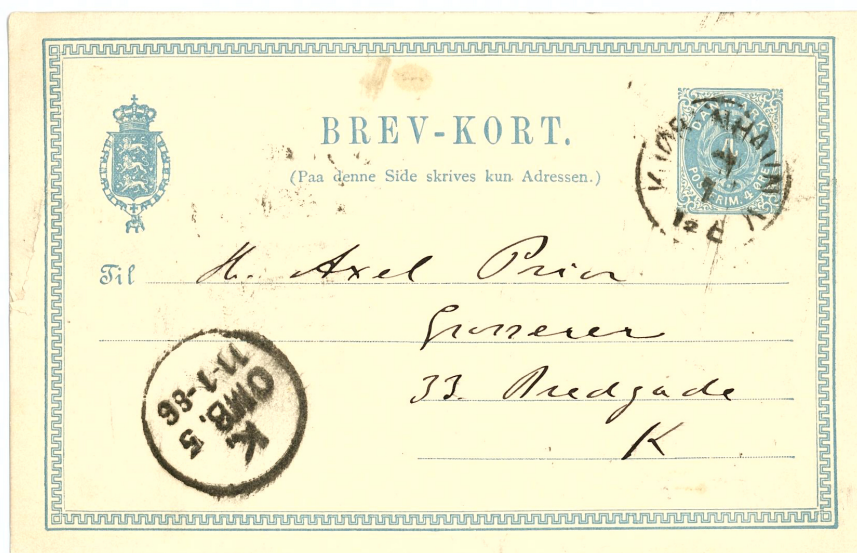 BREV-KORT.
(Paa denne Side skrives kun Adressen.)
DANMARK
4
POSTFRIM. 4 ØRE
KJØBENHAVN V
Til H. Axel Prior
Grosserer
33. Bredgade
K
K.
OMB. 5
11-1-86